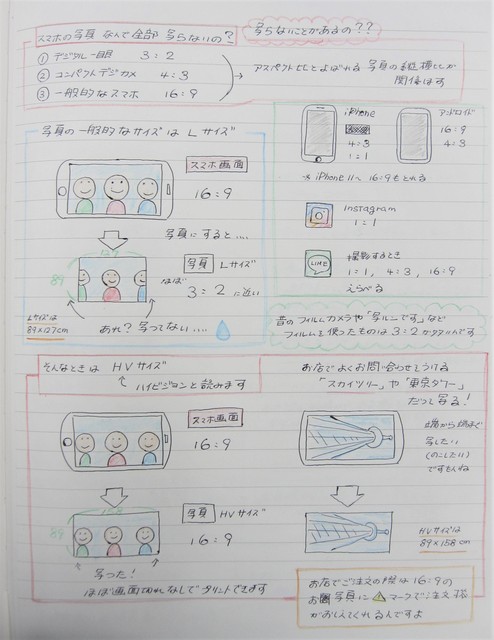 スマホの写真 なんで全部 写らないの？
写らないことがあるの？？
① デジタル一眼 3：2
② コンパクトデジカメ 4：3
③ 一般的なスマホ 16：9
アスペクト比とよばれる 写真の縦横比が
関係します
写真の一般的なサイズは Lサイズ
スマホ画面
16：9
写真にすると....
127
89
写真 Lサイズ
ほぼ
3：2 に近い
Lサイズは
89×127cm
あれ？写ってない....
iPhone
4：3
1：1
アンドロイド
16：9
4：3
※ iPhone11〜 16：9もとれる
Instagram
1：1
LINE
撮影するとき
1：1, 4：3, 16：9
えらべる
昔のフィルムカメラや「写ルンです」など
フィルムを使ったものは 3：2が
そんなときは HVサイズ
ハイビジョンと読みます
スマホ画面
16：9
158
89
写真 HVサイズ
16：9
写った！
ほぼ画面切れなしでプリントできます
お店でよくお問い合わせをうける
「スカイツリー」や「東京タワー」
だって写る！
端から端まで
写したい
(のこしたい)
ですもんね
HVサイズは
89×158cm
お店でご注文の際は 16：9の
お写真に マークでご注文機
がおしえてくれるんですよ